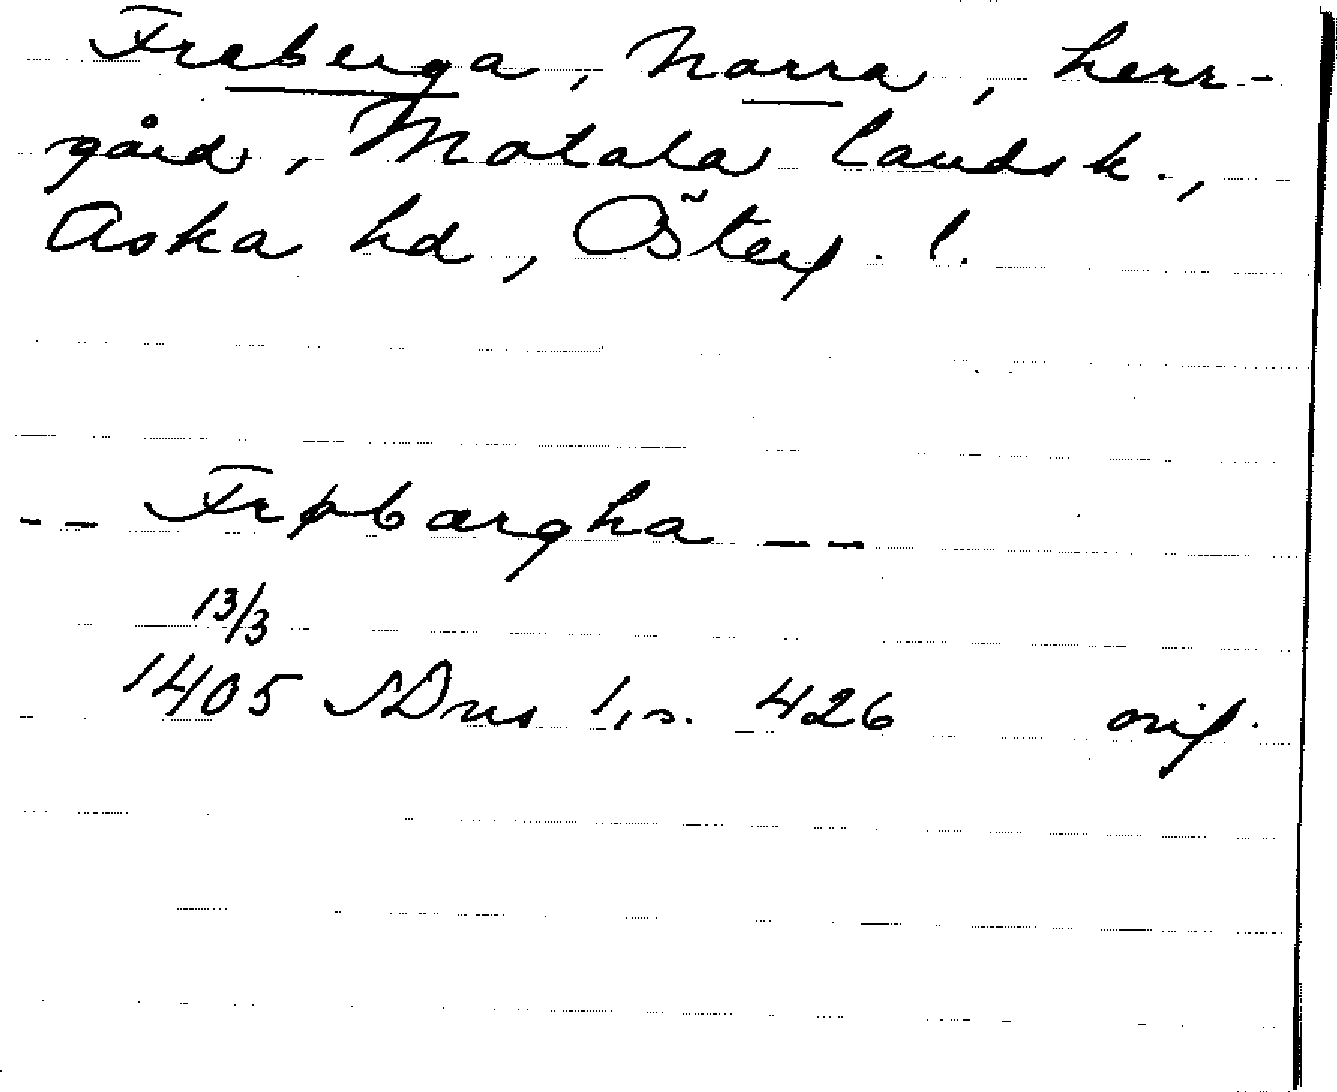 Fraberga, Norra, herr-
gård, Motala landsk.,
Aska hd, Österg. l.
-- Frøbærgha --
13/3
1405 SDns 1, s. 426 orig.